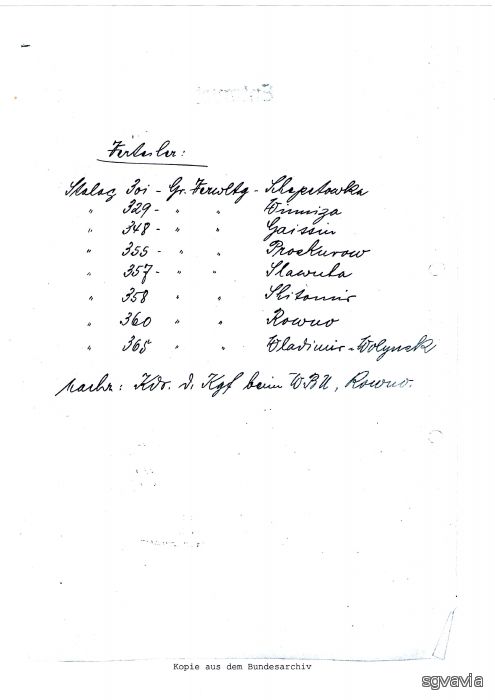 Verteiler:
Stalag 301 - Gr. Verwltg - Schepetowka
" 329 - " " Winniza
" 348 - " " Gaissin
" 355 - " " Proskurow
" 357 - " " Slawuta
" 358 " " Shitomir
" 360 " " Rowno
" 365 " " Wladimir-Wolynsk
nachr: Kdr. d. Kgf beim WBU, Rowno.
Kopie aus dem Bundesarchiv
sgvavia